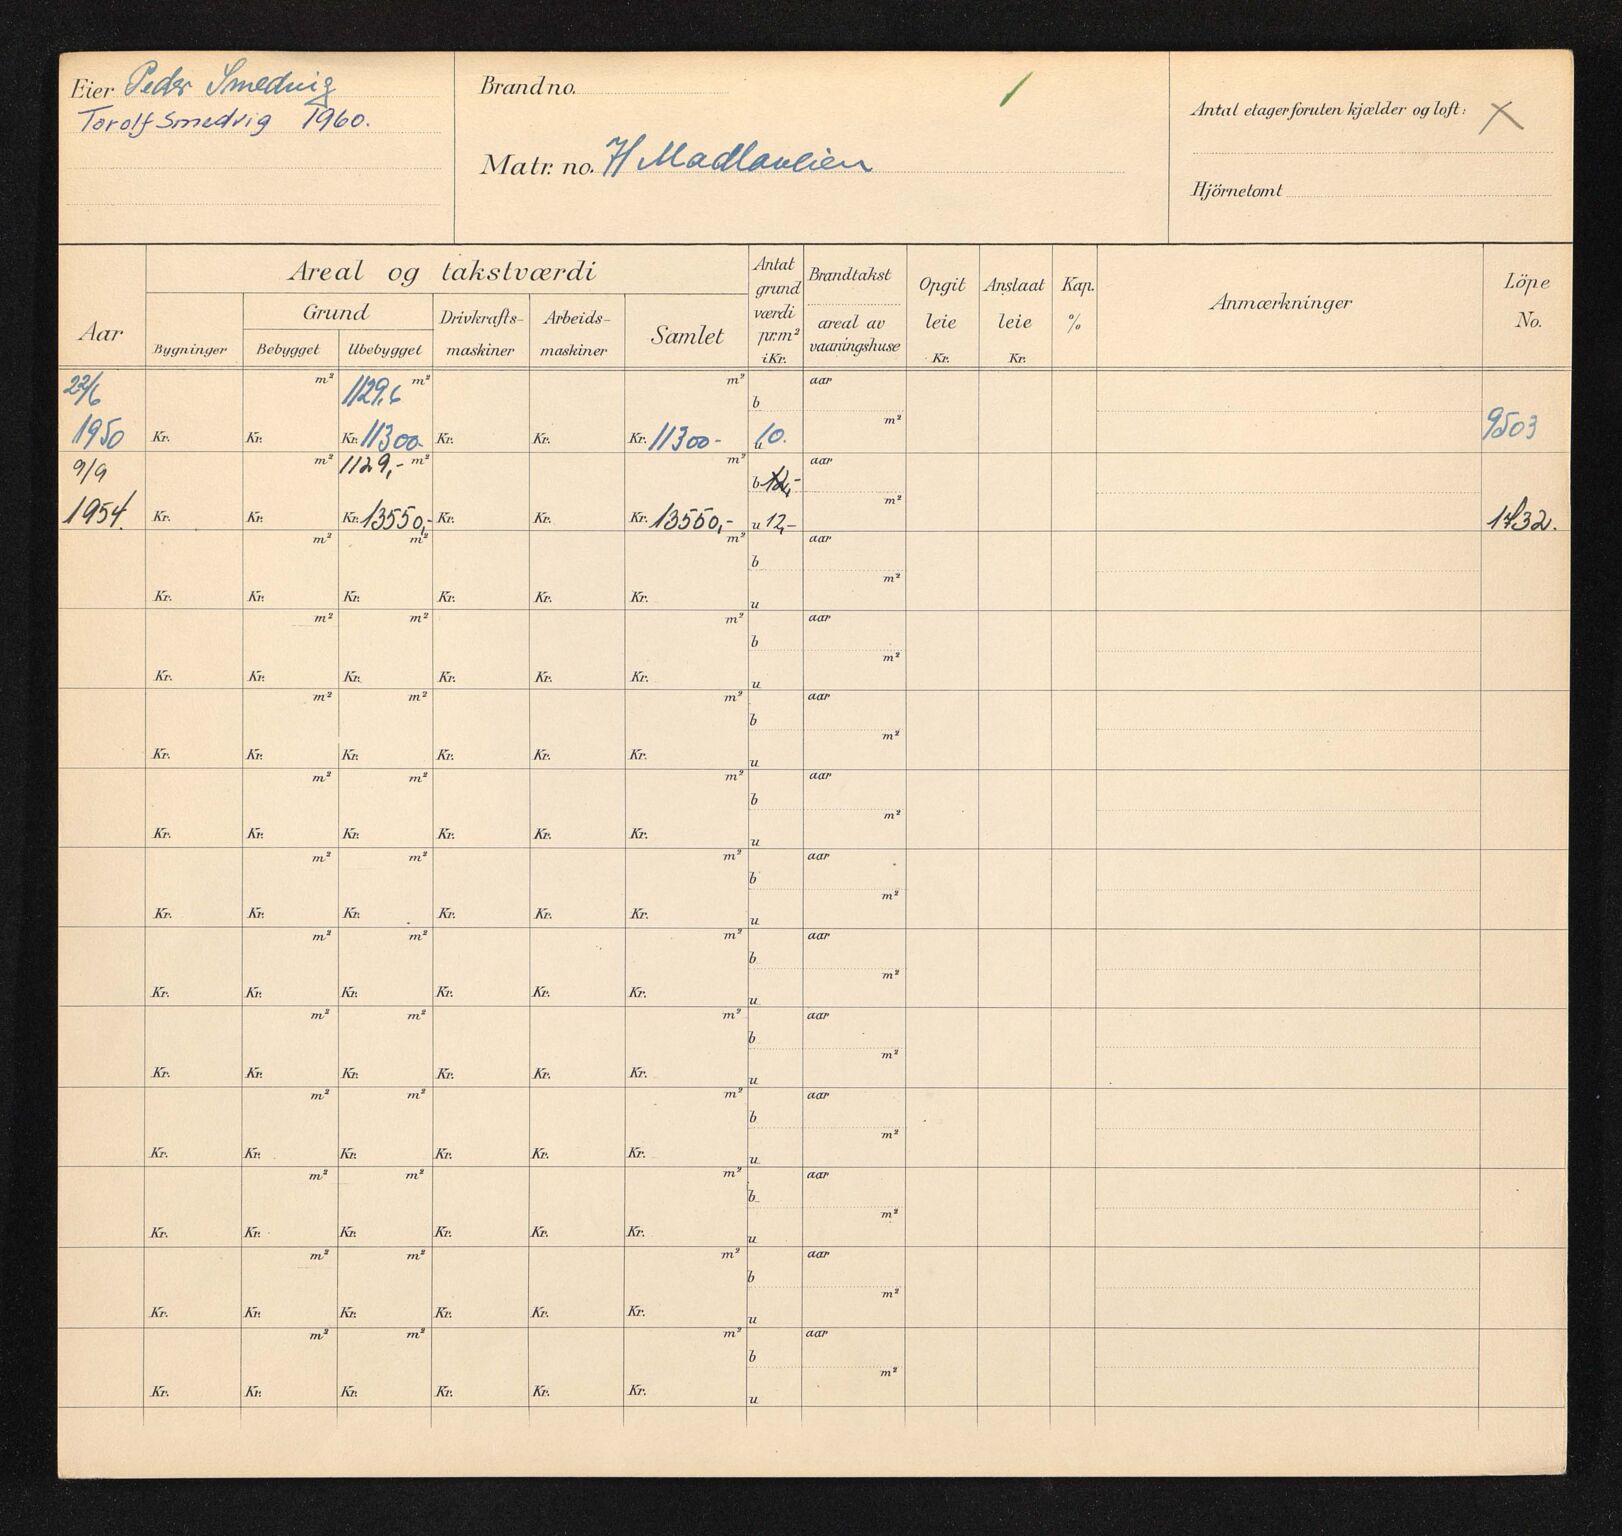 Eier Peder Smedvig
Torolf Smedvig 1960.
Brand no.
Matr. no. H Madlaveien
Antal etager foruten kjælder og loft: X
Hjörnetomt
Aar
Areal og takstværdi
Bygninger
Grund
Bebygget
Ubebygget
Drivkrafts-
maskiner
Arbeids-
maskiner
Samlet
Antat
grund
værdi
pr.m²
i Kr.
Brandtakst
areal av
vaaningshuse
Opgit
leie
Kr.
Anslaat
leie
Kr.
Kap.
%
Anmærkninger
Löpe
No.
22/6 m² 1129,6 m² m² b aar
1950 Kr. Kr. Kr. 11300- Kr. Kr. Kr. 11300- u 10. m² 9503
9/9 m² 1129,- m² m² b 12,- aar
1954. Kr. Kr. Kr. 13550,- Kr. Kr. Kr. 13550,- u 12,- m² 1732.
m² m² m² b aar
Kr. Kr. Kr. Kr. Kr. Kr. u m²
m² m² m² b aar
Kr. Kr. Kr. Kr. Kr. Kr. u m²
m² m² m² b aar
Kr. Kr. Kr. Kr. Kr. Kr. u m²
m² m² m² b aar
Kr. Kr. Kr. Kr. Kr. Kr. u m²
m² m² m² b aar
Kr. Kr. Kr. Kr. Kr. Kr. u m²
m² m² m² b aar
Kr. Kr. Kr. Kr. Kr. Kr. u m²
m² m² m² b aar
Kr. Kr. Kr. Kr. Kr. Kr. u m²
m² m² m² b aar
Kr. Kr. Kr. Kr. Kr. Kr. u m²
m² m² m² b aar
Kr. Kr. Kr. Kr. Kr. Kr. u m²
m² m² m² b aar
Kr. Kr. Kr. Kr. Kr. Kr. u m²
m² m² m² b aar
Kr. Kr. Kr. Kr. Kr. Kr. u m²